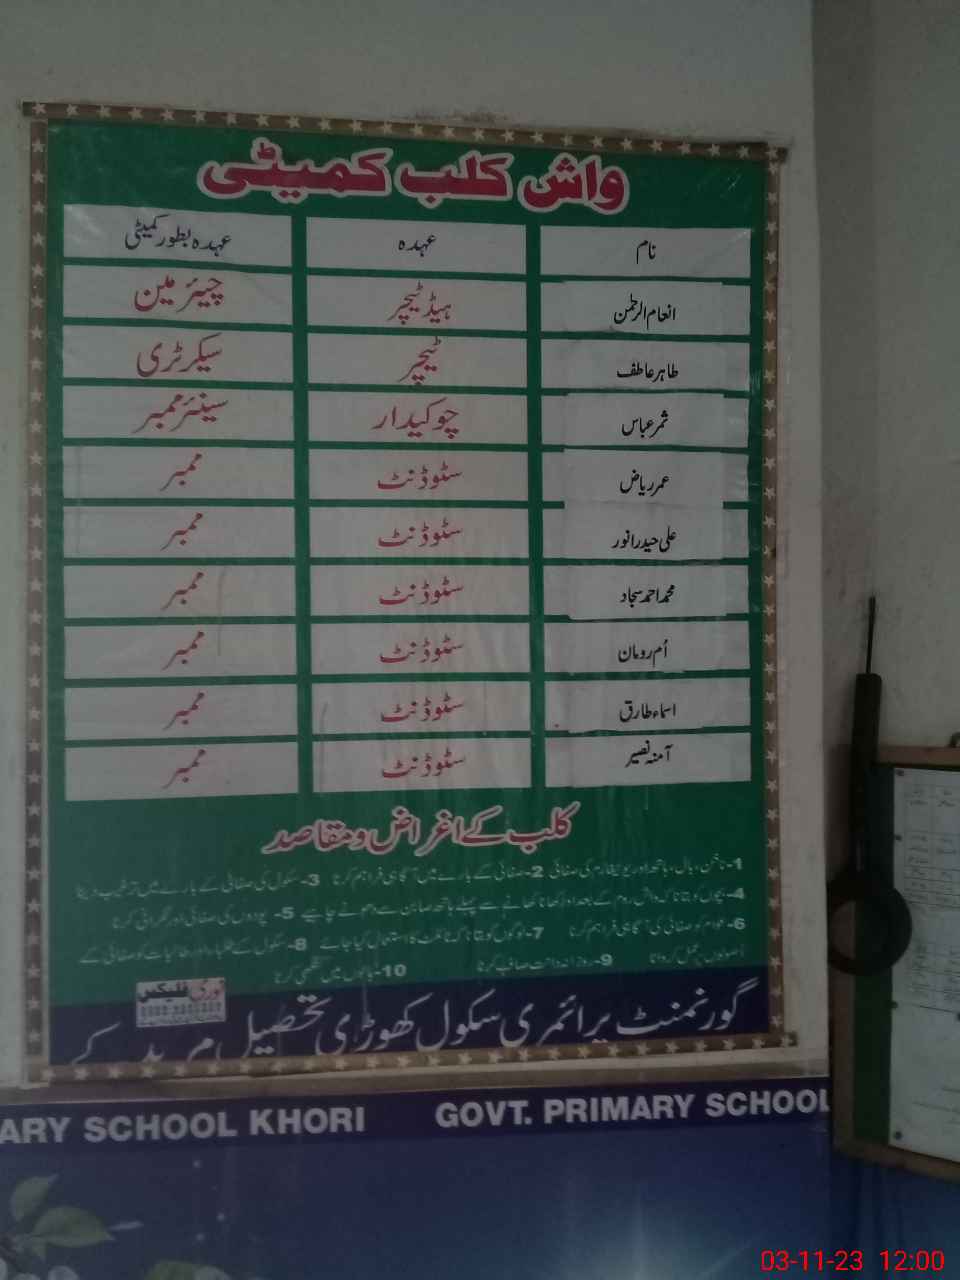 واش کلب کمیٹی
نام عہدہ عہدہ بطور کمیٹی
انعام الرحمٰن ہیڈ ٹیچر چیئر مین
طاہر عاطف ٹیچر سیکرٹری
ثمر عباس چوکیدار سینئر ممبر
عمر ریاض سٹوڈنٹ ممبر
علی حیدر انور سٹوڈنٹ ممبر
محمد احمد سجاد سٹوڈنٹ ممبر
اُم رومان سٹوڈنٹ ممبر
اسماء طارق سٹوڈنٹ ممبر
آمنہ نصیر سٹوڈنٹ ممبر
کلب کے اغراض و مقاصد
1- ناخن، بال، ہاتھ اور یونیفارم کی صفائی 2- صفائی کے بارے میں آگاہی فراہم کرنا 3- سکول کی صفائی کے بارے میں ترغیب دینا
4- بچوں کو بتانا کہ واش روم کے بعد اور کھانا کھانے سے پہلے ہاتھ صابن سے دھونے چاہیے 5- پودوں کی صفائی اور نگرانی کرنا
6- عوام کو صفائی کی آگاہی فراہم کرنا 7- لوگوں کو بتانا کہ ٹائلٹ کا استعمال کیا جائے 8- سکول کے طلباء اور طالبات کو صفائی کے
اصولوں پر عمل کروانا 9- روزانہ دانت صاف کرنا 10- بالوں میں کنگھی کرنا
نوری فلیکس
گورنمنٹ پرائمری سکول کھوڑی تحصیل مریدکے
ARY SCHOOL KHORI GOVT. PRIMARY SCHOOL
03-11-23 12:00